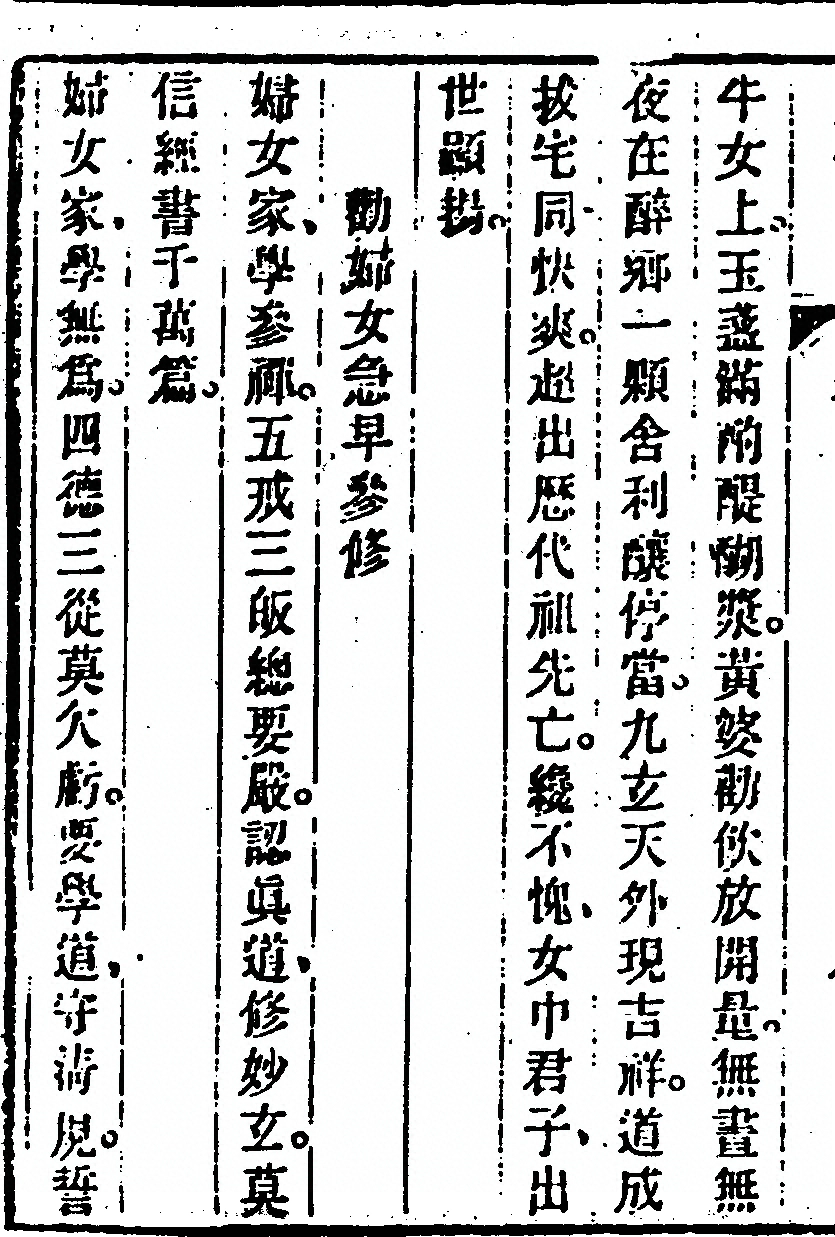 牛女上。玉盞滿酌醍醐漿。黃婆勸飲放開量。無晝無
夜在醉鄉一顆舍利釀停當。九玄天外現吉祥。道成
拔宅同快爽。超出歷代祖先亡。纔不愧、女巾君子、出
世顯揚。
勸婦女急早參修
婦女家、學參禪。五戒三皈總要嚴。認眞道、修妙玄。莫
信經書千萬篇。
婦女家、學無爲。四德三從莫欠虧。要學道、守淸規。誓